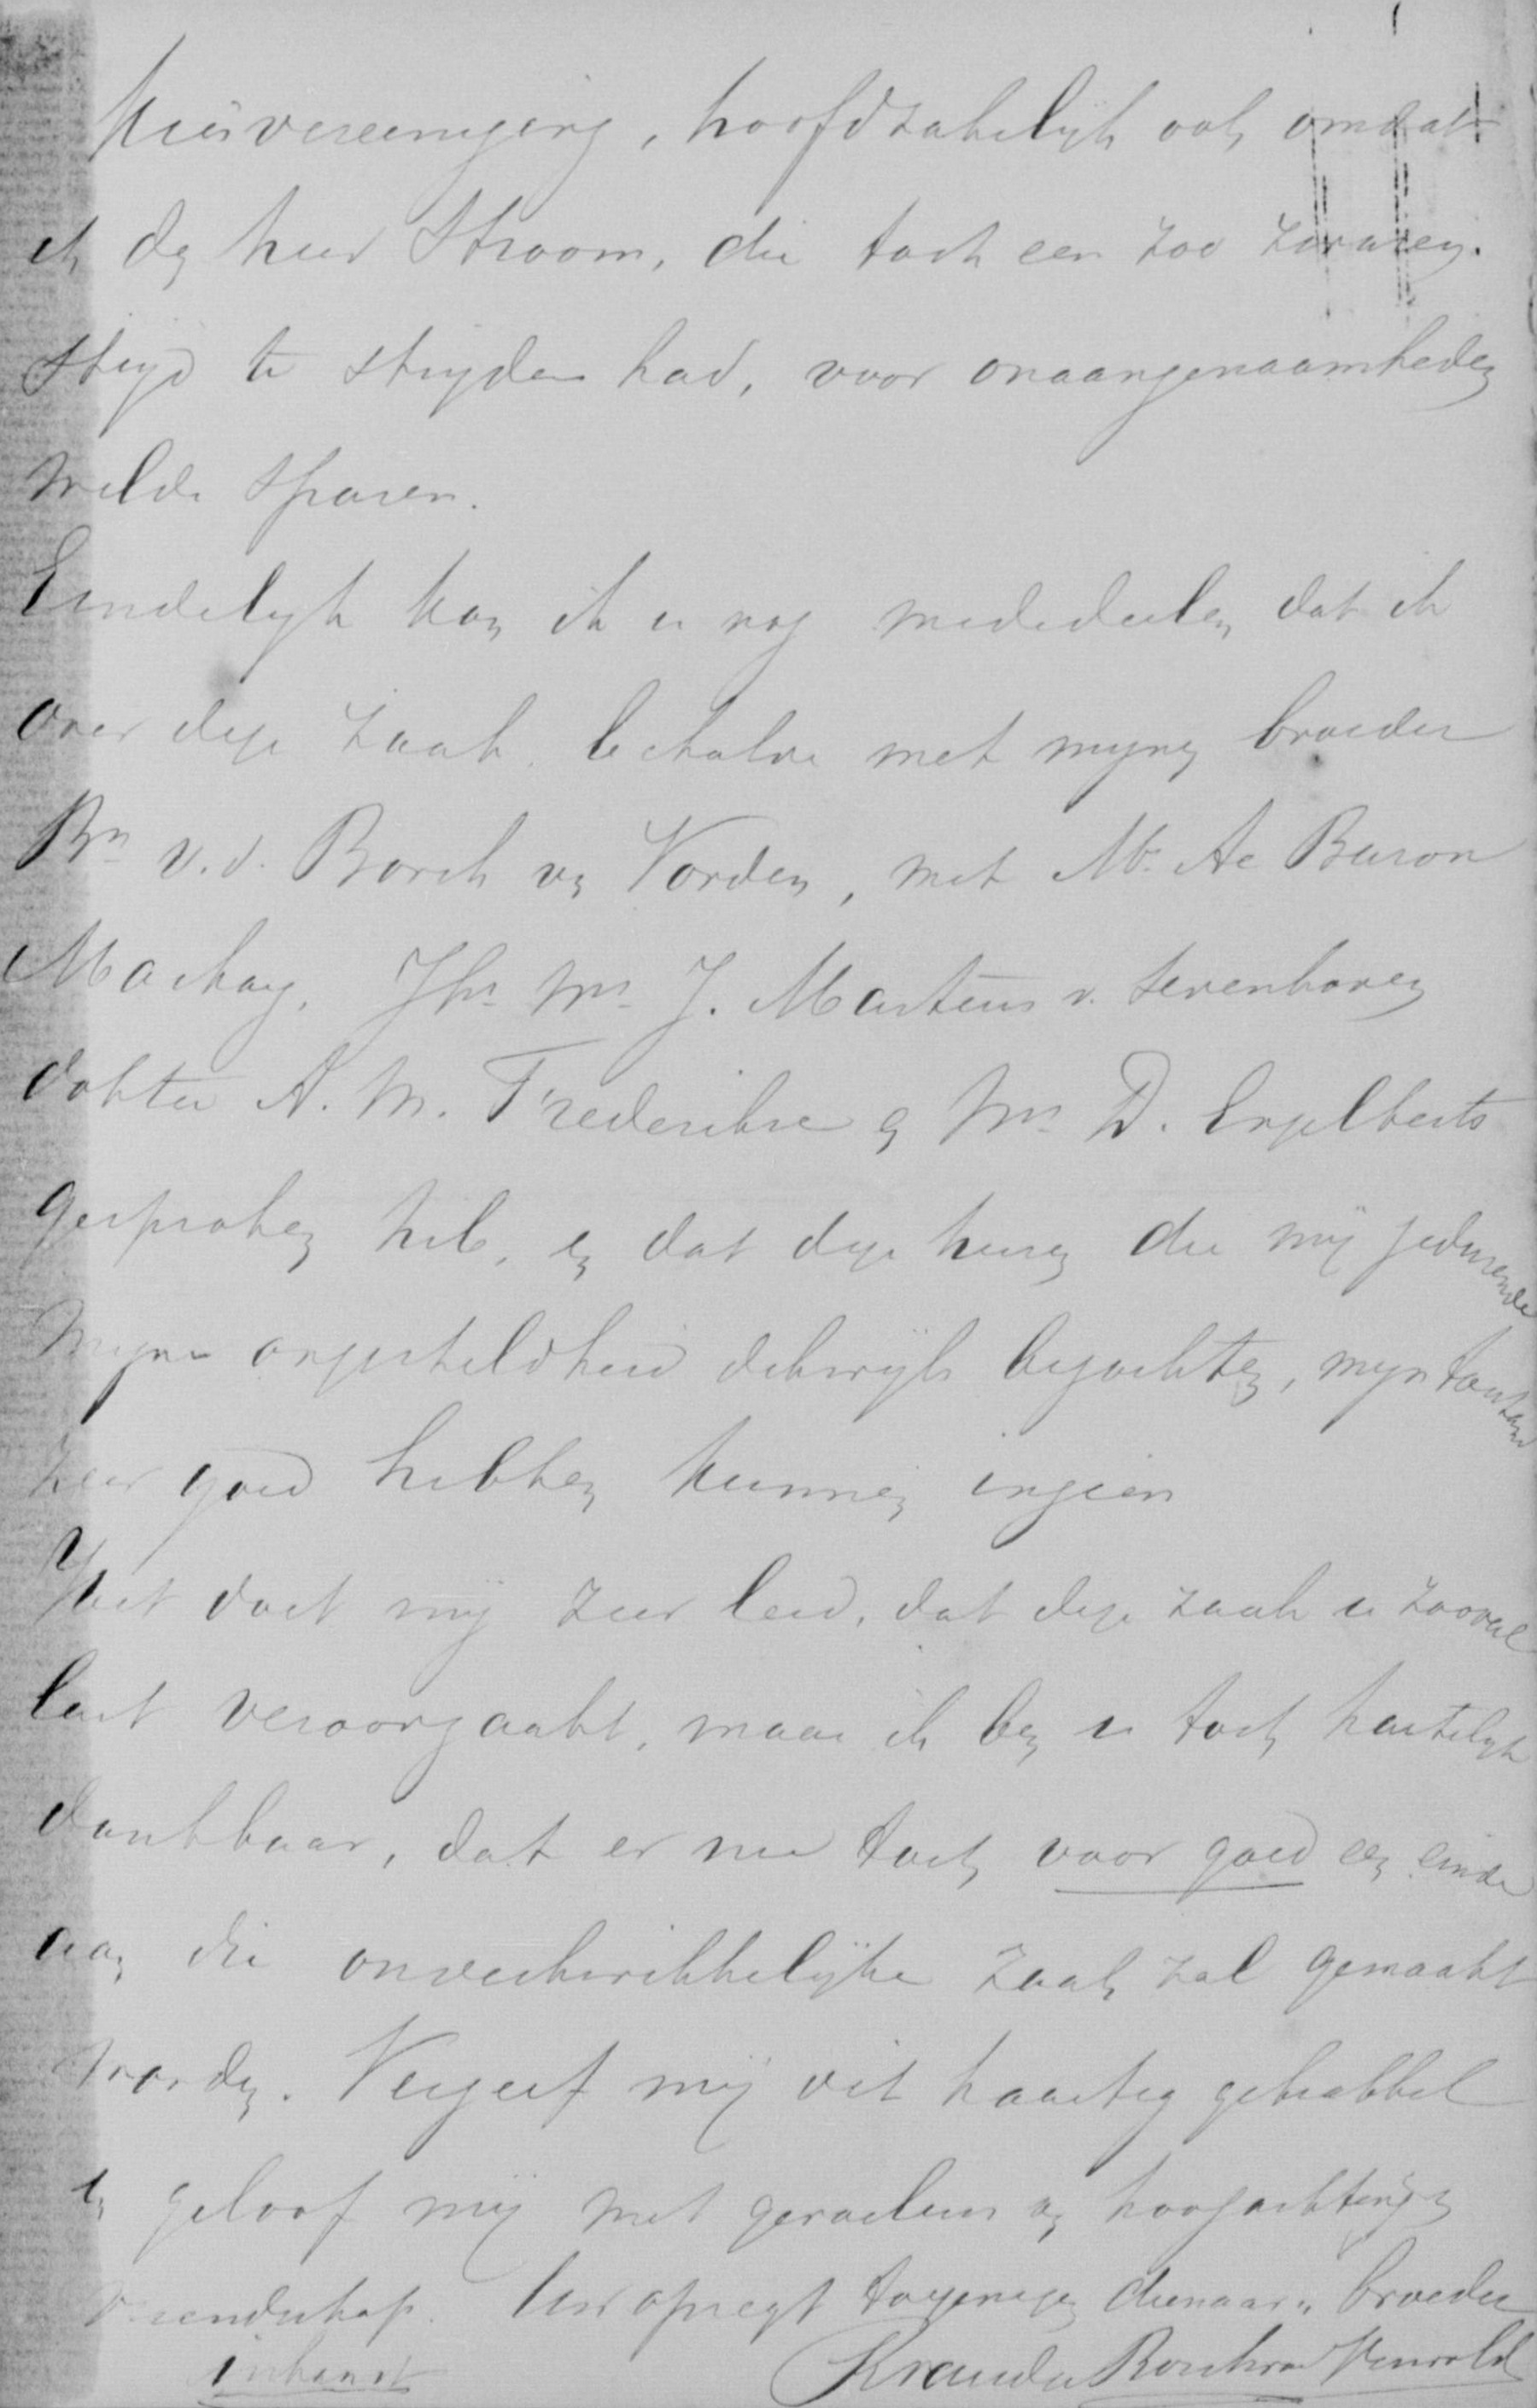 Kiesvereeniging, hoofdzakelijk ook omdat
ik den heer Stroom, die toch een zoo zwaren
strijd te strijden had, voor onaangenaamheden
wilde sparen.
Eindelijk kan ik u nog mededeelen dat ik
over deze zaak behalve met mynen broeder
Bn v.d. Borch vn Vorden, met Mr. Ae Baron
Mackay, Jhr Mr J. Martens v. Sevenhoven
dokter A. M. Frederikse en Mr D. Engelberts
gesproken heb, en dat deze heeren die mij gedurende
mijne ongesteldheid dikwijls bezochten, mijn toestand
zeer goed hebben kunnen inzien
Het doet mij zeer leed, dat deze zaak u zooveel
last veroorzaakt, maar ik ben u toch hartelijk
dankbaar, dat er nu toch voor goed een einde
aan die onverkwikkelijke zaak zal gemaakt
worden. Vergeef mij dit haastig gekrabbel
en geloof mij met gevoelens vn hoogachting en
vriendschap. Uw opregt toegenegen dienaar en broeder